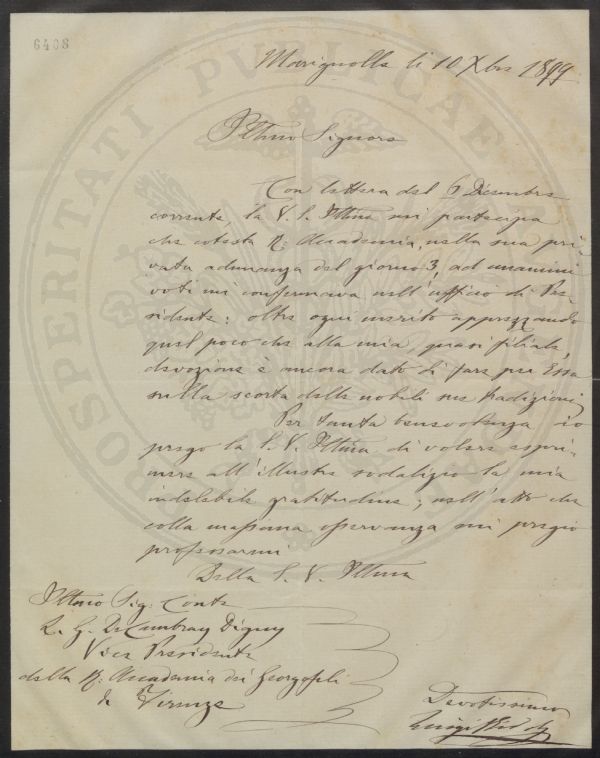 6408
PROSPERITATI PUBLICAE
Marignolla li 10 Xbre 1899
Illmo Signore
Con lettera del 6 Dicembre
corrente, la S. V. Illma mi partecipa
che cotesta R. Accademia, nella sua pri
vata adunanza del giorno 3, ad unanimi
voti mi confermava nell'ufficio di Pre
sidente: oltre ogni merito apprezzando
quel poco che alla mia, quasi filiale,
devozione è ancora dato di fare per Essa
sulla scorta delle nobili sue tradizioni
Per tanta benevolenza io
prego la S. V. Illma di volere espri
mere all'illustre sodalizio la mia
indelebile gratitudine; nell'atto che
colla massima osservanza mi pregio
professarmi
Della S. V. Illma
Illmo Sig. Conte
L. G. De Cambray Digny
Vice Presidente
della R. Accademia dei Georgofili
di Firenze
Devotissimo
Luigi